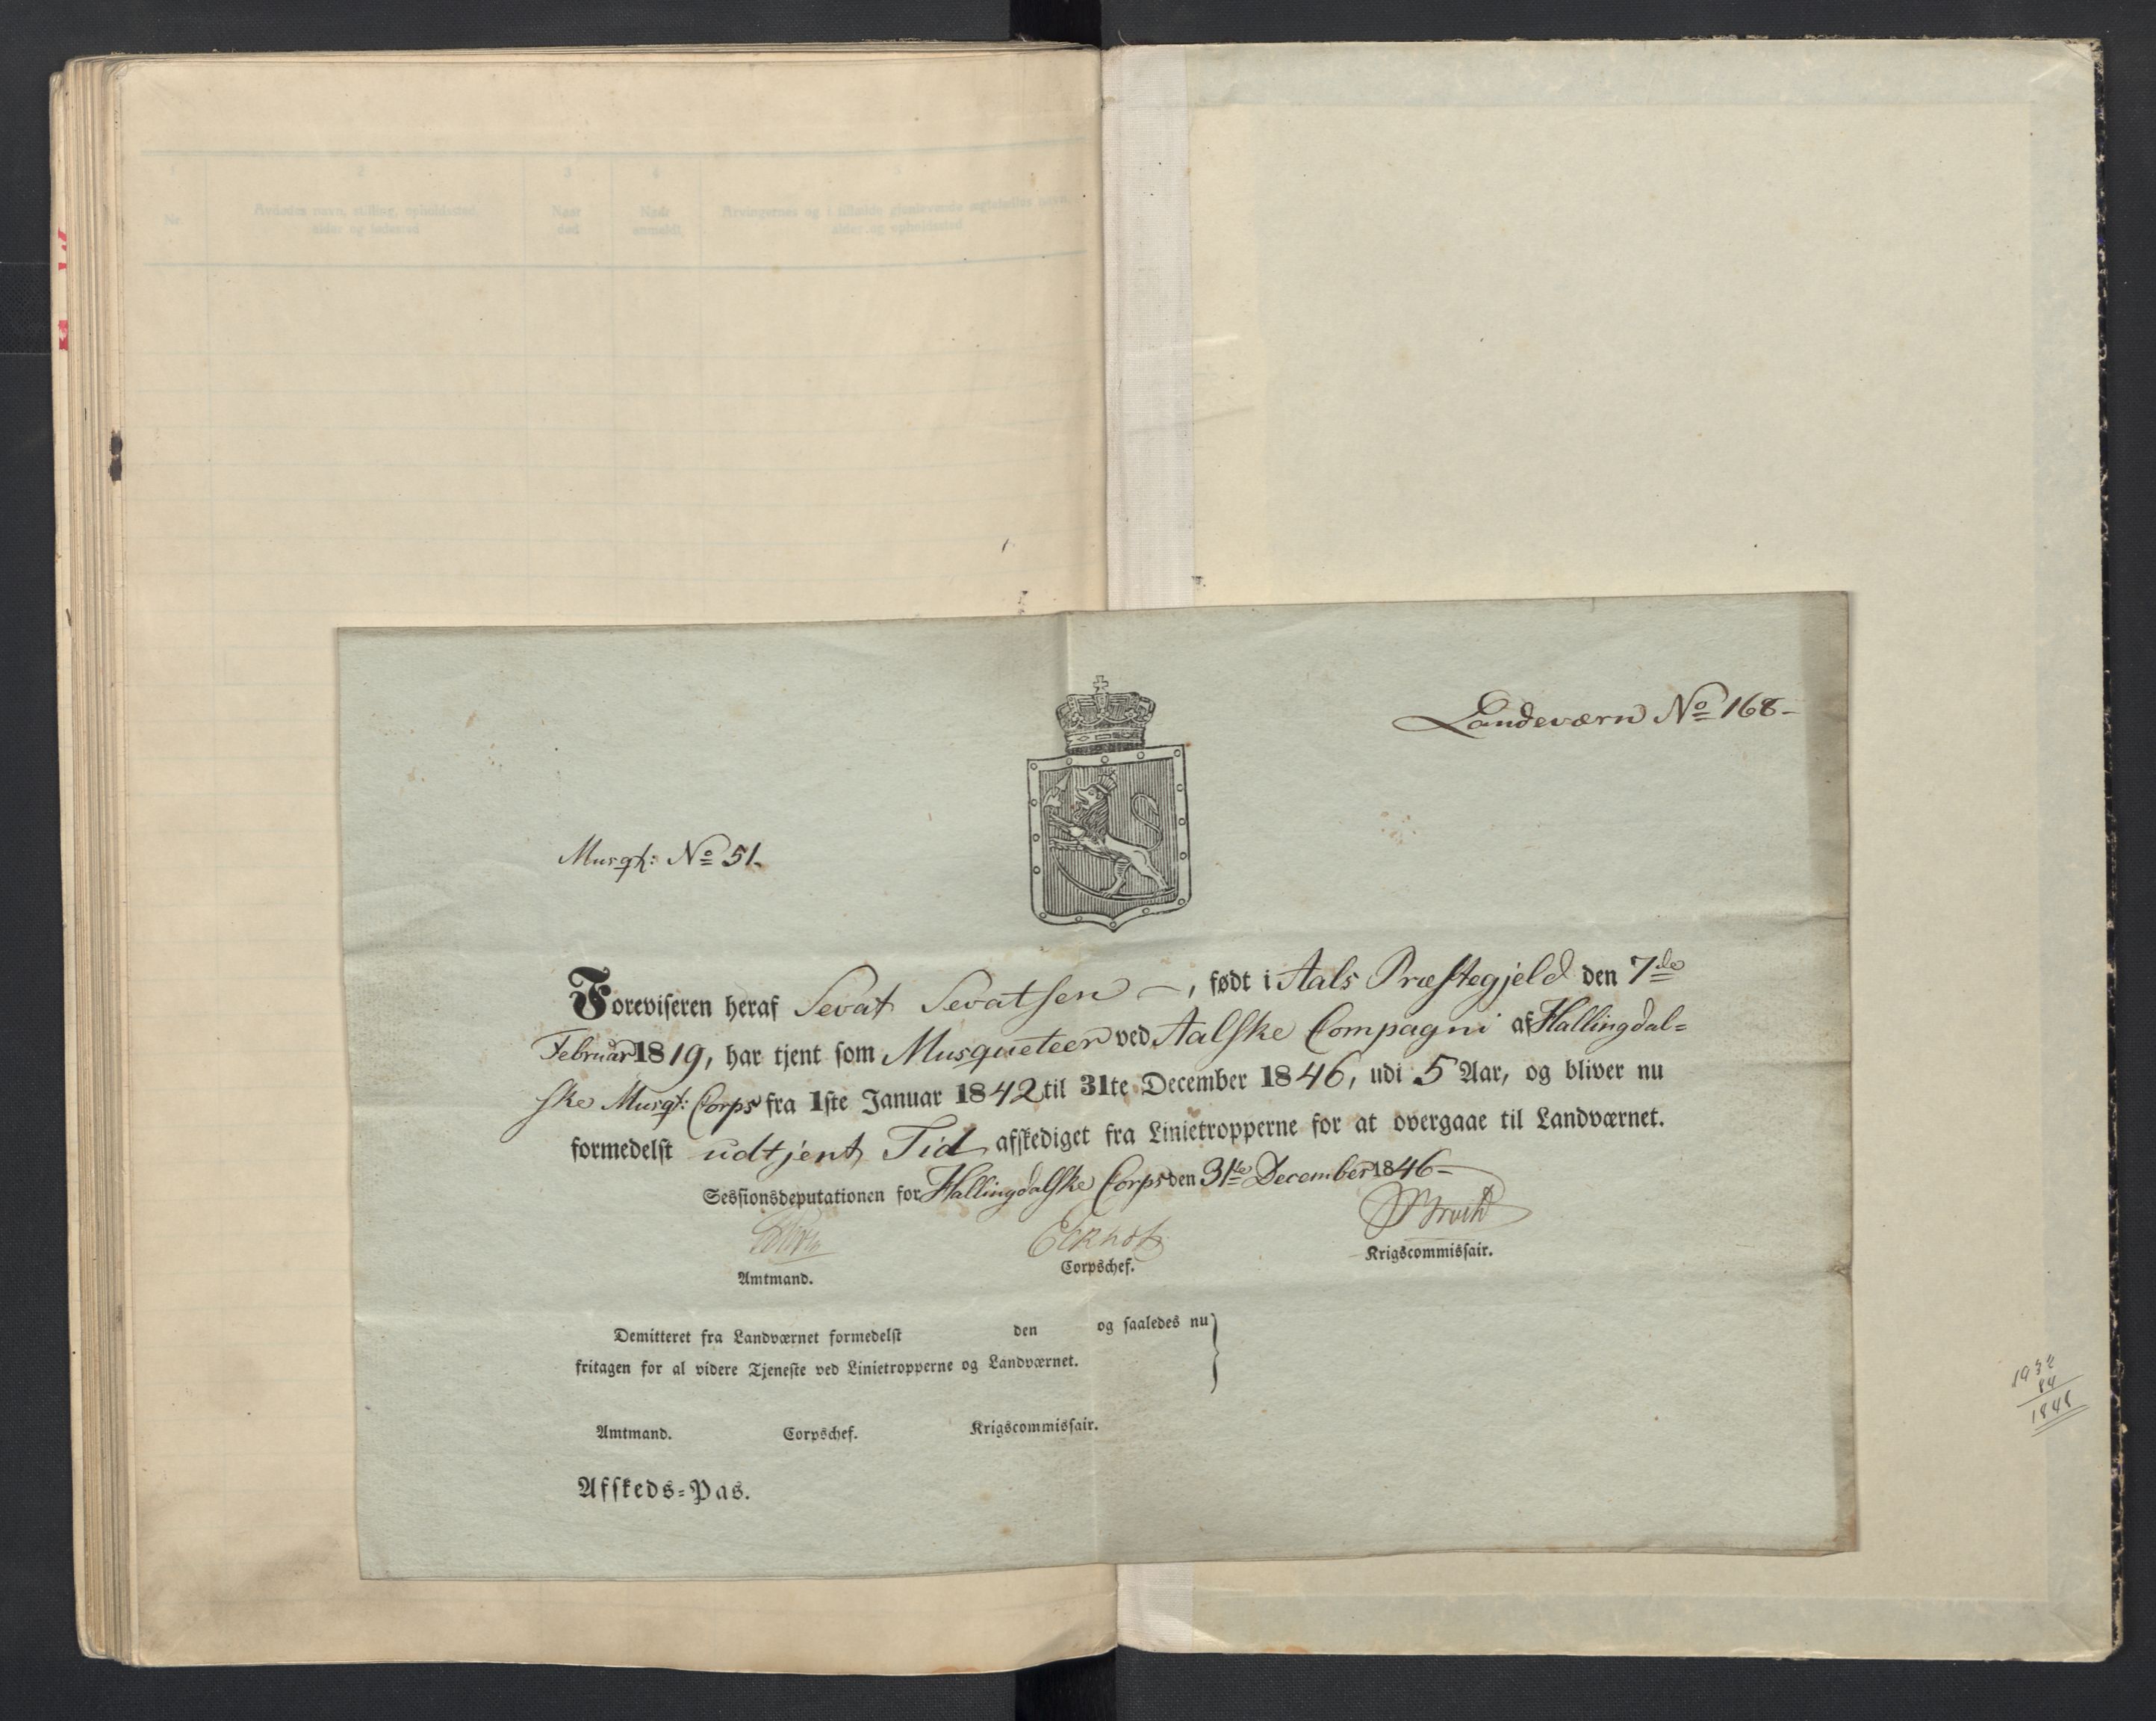 1 2 3 4 5
Nr. Avdødes navn, stilling, opholdssted, Naar Naar Arvingernes og i tilfælde gjenlevende egtefælles navn,
alder og fødested død anmeldt alder og opholdssted
Landeværn No 168-
Musqt: No 51.
Foreviseren heraf Sevat Sevatsen –, født i Aals Præstegjeld den 7de
Februar 1819, har tjent som Musqueteer ved Aalske Compagni af Hallingdal=
ske Musqt: Corps fra 1ste Januar 1842 til 31te December 1846, udi 5 Aar, og bliver nu
formedelst udtjent Tid afskediget fra Linietropperne for at overgaae til Landværnet.
Sessionsdeputationen for Hallingdalske Corps den 31te December 1846–
Broch
Amtmand. Corpschef. Krigscommissair.
Demitteret fra Landværnet formedelst den og saaledes nu
fritagen for al videre Tjeneste ved Linietropperne og Landværnet.
Amtmand. Corpschef. Krigscommissair.
Afskeds=Pas.
1932
84
1848